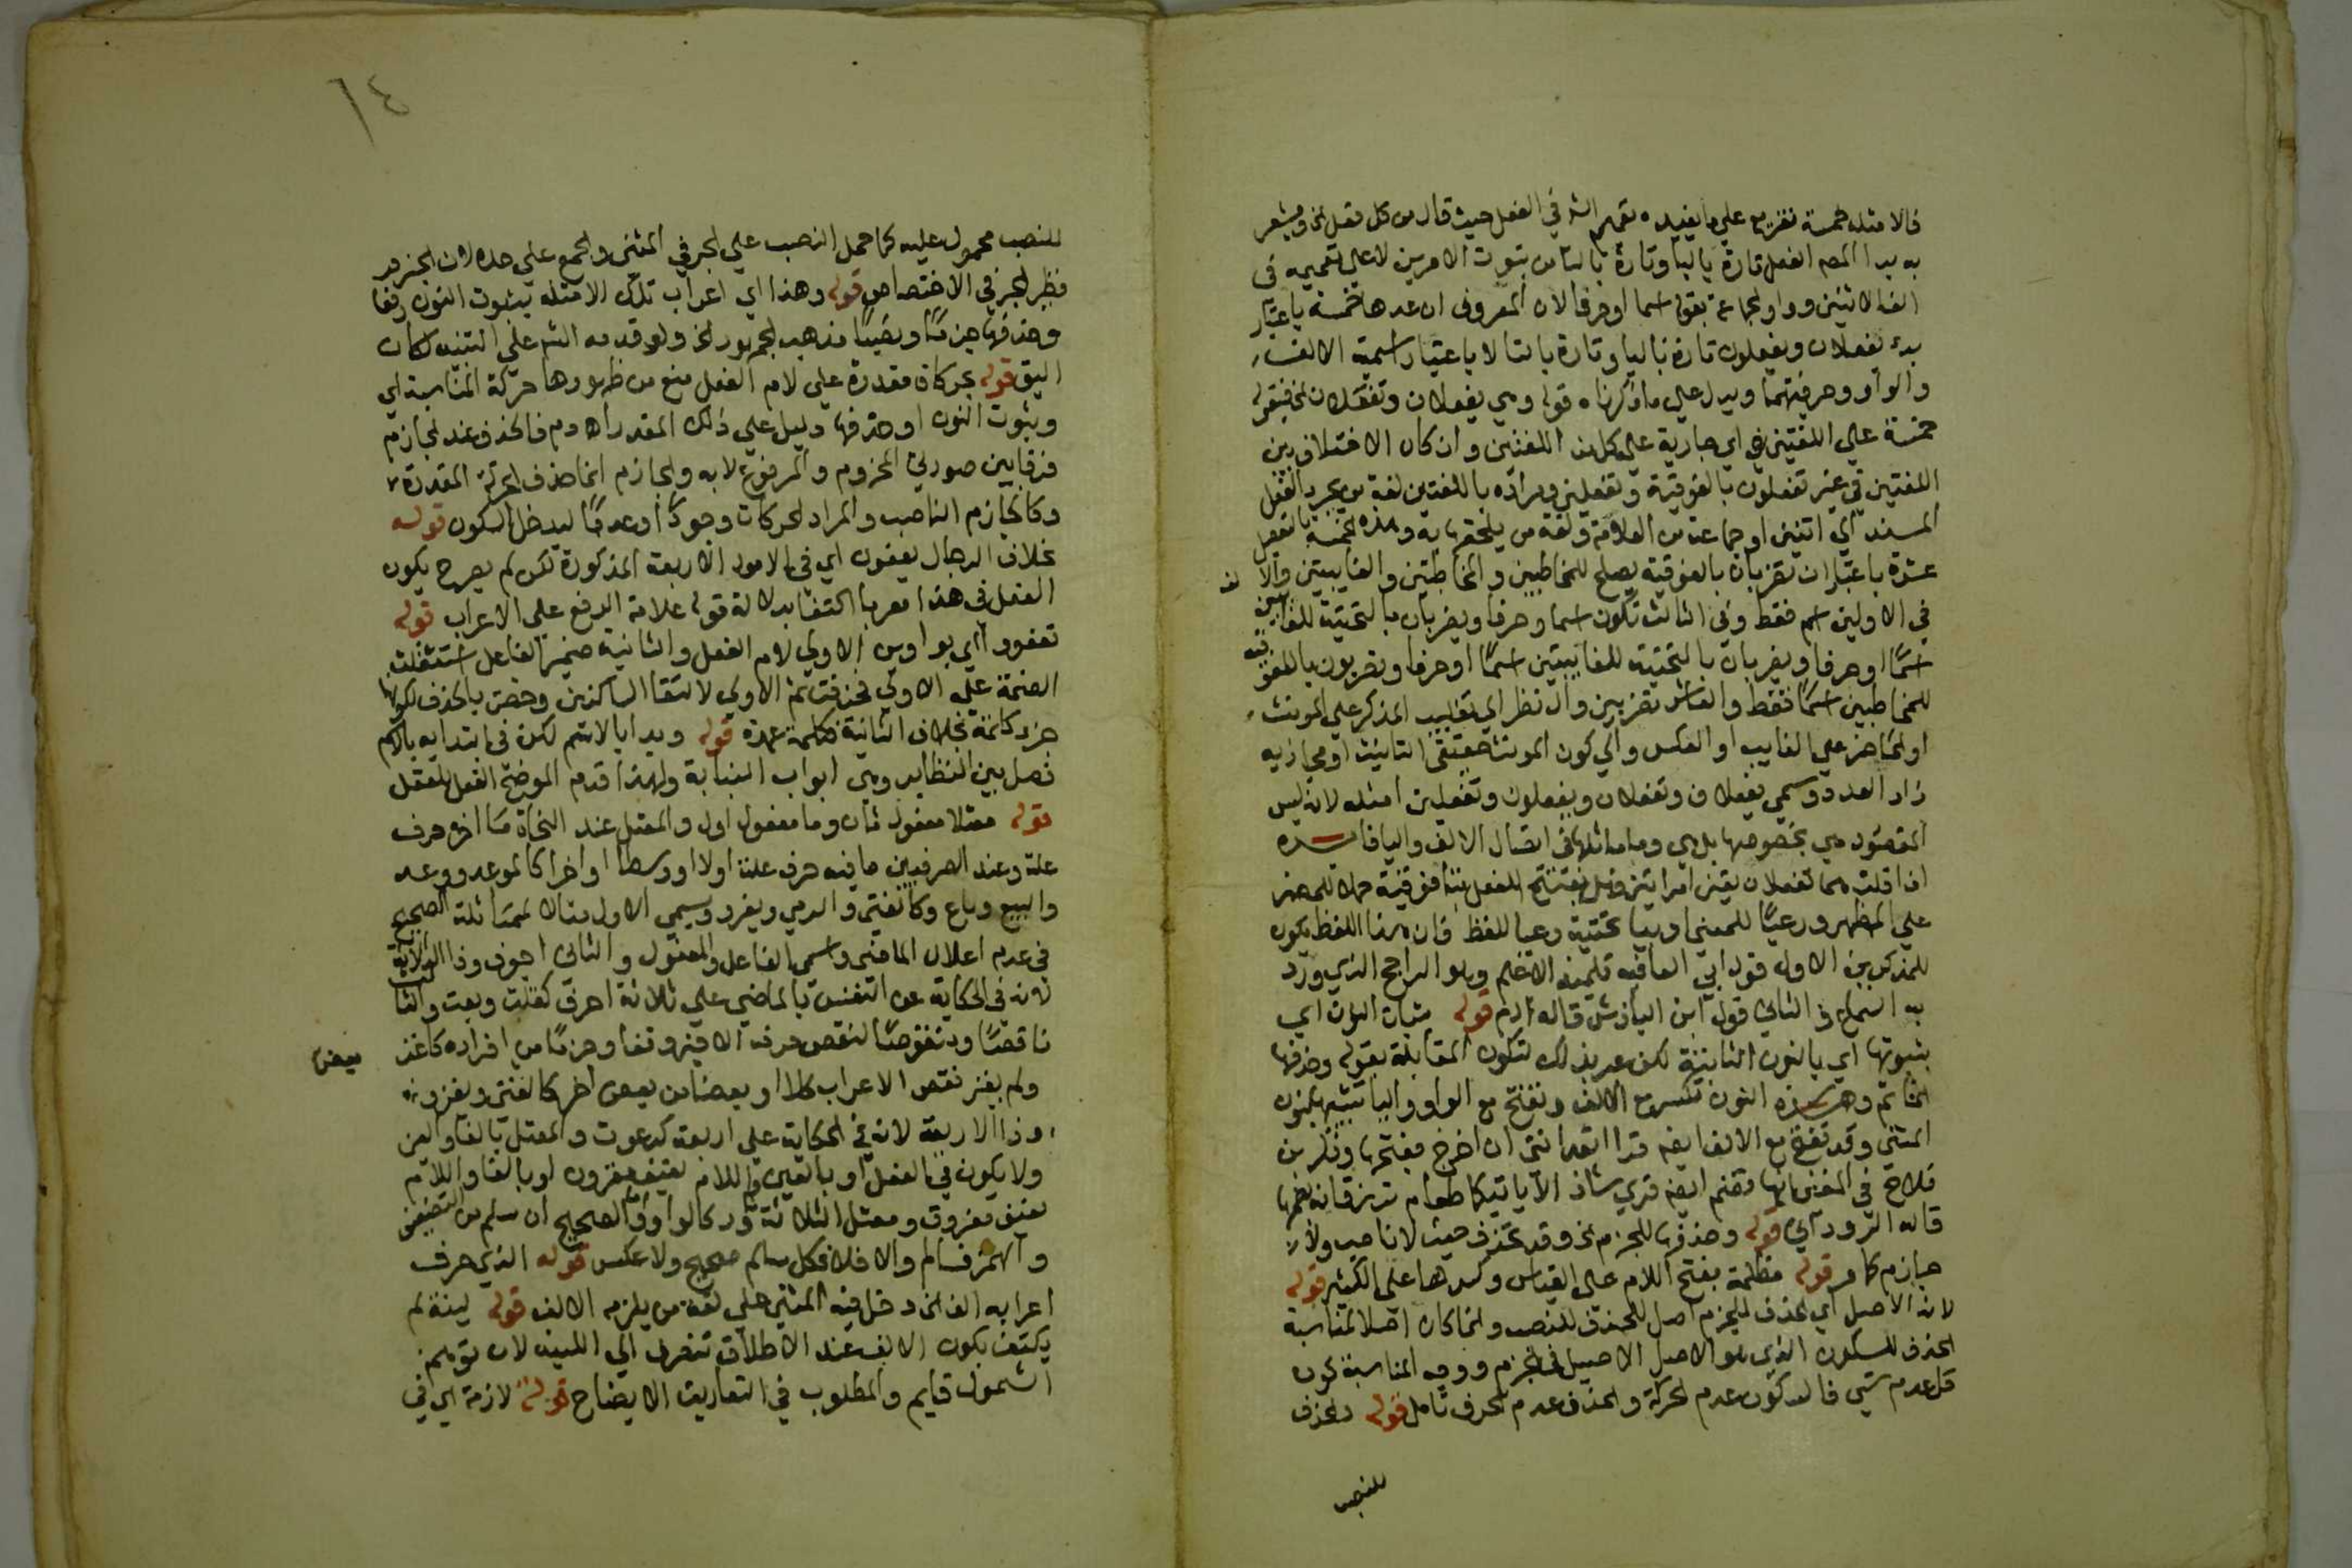 فالامثلة خمسة تفريع على ما يفيده تعميم الش في الفعل حيث قال من كل فعل الخ ويشعر
به بدا المص الفعل تارة بالياء وتارة بالتا من ثبوت الامرين لا على تعميمه في
الف الاثنين وواو الجماعة بقوله اسما او حرفا لان المعروف ان عدها خمسة باعتبار
بدء يفعلان ويفعلون تارة باليا وتارة بالتا لا باعتبار اسمية الالف
والواو وحرفيتهما ويدل على ما ذكرناه قوله وهي يفعلان وتفعلان الخ فيقول
خمسة على اللغتين اي جارية على كل من اللغتين وان كان الاختلاف بين
اللغتين في غير تفعلون بالفوقية وتفعلين ومراده باللغتين لغة من يجرد الفعل
المسند الي اثنين او جماعة من العلامة ولغة من يلحقها به وهذه الخمسة بالفعل
عشرة باعتبار ان تضربان بالفوقية يصلح للمخاطبين والمخاطبتين والغايبتين والا لف
في الاولين اسم فقط وفي الثالث تكون اسما وحرفا ويضربان بالتحتية للغايبين
اسما او حرفا ويضربان بالتحتية للغايبتين اسما او حرفا وتضربون بالفوقية
للمخاطبين اسما فقط والعاشر تضربين وان نظر الي تغليب المذكر على المونث
او الحاضر على الغايب او العكس والي كون المونث حقيقي التانيث او مجازيه
زاد العدد وسمي يفعلان وتفعلان ويفعلون وتفعلين امثله لانه ليس
المقصود هي بخصوصها بل هي وما ماثلها في اتصال الالف واليا فائده
اذا قلت هما تفعلان تعني امراتين فهل يفتتح الفعل بتا فوقية حملا للمضمر
على المظهر ورعيا للمعنى او بيا تحتية رعيا للفظ فان هذا اللفظ يكون
للمذكرين الاول قول ابي العافية تلميذ الاعلم وهو الراجح الذي ورد
به السماع والثاني قول ابن الباذش قاله الدم قوله ثبات النون اي
بثبوتها اي بالنون الثابتة لكن عبر بذلك لتكون المقابلة بقوله وحذفها
الخ اتم وهذه النون تكسر مع الالف وتفتح مع الواو واليا تشبيها بنون
المثنى وقد تفتح مع الالف ايضا قرا اتعدانني ان اخرج بفتحها وذكر بن
فلاح في المغنى انها تضم ايضا قري شاذا لا ياتيكما طعام ترزقانه بضمها
قاله الرودآني قوله وحذفها للجزم الخ وقد تحذف حيث لا ناصب ولا
جازم كما مر قوله مظلمة بفتح اللام على القياس وكسرها على الكثير قوله
لانه الاصل اي الحذف للجزم اصل للحذف للنصب وانما كان اصلا لمناسبة
الحذف للسكون الذي هو الاصل الاصيل في الجزم ووجه المناسبة كون
كل عدم شي فالسكون عدم الحركة والحذف عدم الحرف تامل قوله والحذف
للنصب
١٤
للنصب محمول عليه كما حمل النصب على الجر في المثنى والجمع على حده لان الجزم
نظير الجر في الاختصاص قوله وهذا اي اعراب تلك الامثله بثبوت النون رفعا
وحذفها جزما ونصبا مذهب الجمهور الخ ولو قدمه الش على التنبيه لكان
اليق قوله بحركات مقدرة على لام الفعل منع من ظهورها حركة المناسبة اي
وثبوت النون او حذفها دليل على ذلك المقدر اه دم فالحذف عند الجازم
فرقا بين صورتي المجزوم والمرفوع لا به والجازم انما حذف الحركة المقدرة
وكالجازم الناصب والمراد الحركات وجودا او عدما ليدخل السكون قوله
بخلاف الرجال يعفون اي في الامور الاربعة المذكورة لكن لم يصرح بكون
الفعل في هذا معربا اكتفا بدلالة قوله علامة الرفع على الاعراب قوله
تعفوو اي بواوين الاولي لام الفعل والثانية ضمير الفاعل استثقلت
الضمة على الاولي فحذفت ثم الاولى لالتقا الساكنين وخصت بالحذف لكونها
جزء كلمة بخلاف الثانية فكلمة عمدة قوله وبدا بالاسم لكن في ابتدايه بالاسم
فصل بين النظاير وهي ابواب النيابة ولهذا قدم الموضح الفعل المعتل
قوله معتلا مفعول ثان وما مفعول اول والمعتل عند النحاة ما اخره حرف
علة وعند الصرفيين ما فيه حرف علة اولا او وسطا او اخرا كالوعد ووعد
والبيع وباع وكالفتى والرمي ويغزو ويسمي الاول مثالا لمماثلة الصحيح
في عدم اعلال الماضي واسمي الفاعل والمفعول والثاني اجوف وذا الثلاثة
لانه في الحكاية عن النفس بالماضي على ثلاثة احرف كقلت وبعت والثالث
ناقصا ومنقوصا لنقص حرفه الاخير وقفا وجزما من افراده كاغز بعض
ولم يغز نقص الاعراب كلا او بعضا من بعض اخر كالفتى ويغزو
وذا الاربعة لانه في الحكاية على اربعة كدعوت والمعتل بالفا والعين
ولا يكون في الفعل او بالعين واللام لفيف مقرون او بالفا واللام
لفيف مفروق ومعتل الثلاثة نادر كالواو والصحيح ان سلم من التضعيف
والهمز فسالم والا فلا فكل سالم صحيح ولا عكس قوله الذي حرف
اعرابه الف الخ دخل فيه المثنى على لغة من يلزمه الالف قوله لينة لم
يكتف بكون الالف عند الاطلاق تنصرف الي اللينه لان توهم
الشمول قايم والمطلوب في التعاريف الايضاح قوله لازمة اي في